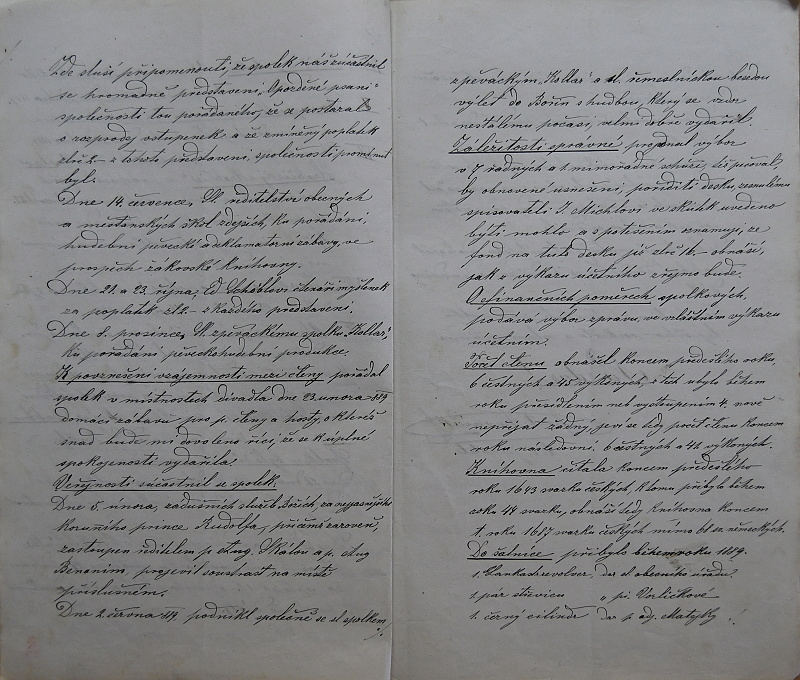 Zde sluší připomenouti, že spolek náš zúčastnil
se hromadně představení „Uvozděné psaní“
společností tou pořádaného, že se postaral
o rozprodej vstupenek a že zmíněný poplatek
zl. 2.- z tohoto představení, společnosti prominut
byl.
Dne 14. července, Sl. ředitelství obecných
a měšťanských škol zdejších, ku pořádání
hudební pěvecké a deklamatorní zábavy, ve
prospěch žákovské knihovny.
Dne 21. a 23. října, čtenáři myšlenek
za poplatek zl. 2.- z každého představení.
Dne 8. prosince, Sl. zpěváckému spolku „Kollár“,
ku pořádání pěveckohudební produkce.
K povznešení vzájemnosti mezi členy pořádal
spolek v místnostech divadla dne 23. února 1889
domácí zábavu pro p. členy a hosty, o kteréž
snad bude mi dovoleno říci, že se k úplné
spokojenosti vydařila.
Veřejnosti súčastnil se spolek.
Dne 5. února, zádušních služeb Božích, za nejjasnějšího
korunního prince Rudolfa, přičemž zároveň,
zastoupen ředitelem p. Aug. Skálou a p. Aug
Benonim, projevil soustrast na místě
příslušném.
Dne 2. června 1889 podnikl společně se sl. spolkem
zpěváckým „Kollár“ a sl. řemeslnickou besedou
výlet do Bořin s hudbou, který se vzdor
nestálému počasí, velmi dobře vydařil.
Záležitosti správné projednal výbor
v 7 řádných a 1 mimořádné schůzi, též pečoval,
by obnovené usnešení, poříditi desku zesnulému
spisovateli J. Michlovi ve skutek uvedeno
býti mohlo a s potěšením oznamuji, že
fond na tuto desku již zl. 16.- obnáší,
jak z výkazu účetního zřejmo bude.
O finančních poměrech spolkových,
podává výbor zprávu, ve zvláštním výkazu
účetním.
Počet členů obnášel koncem předešlého roku,
6 čestných a 45 výkonných, z těch ubylo během
roku přesídlením neb vystoupením 4, nově
nepřijat žádný, jeví se tedy počet členů koncem
roku následovní: 6 čestných a 41 výkonných.
Knihovna čítala koncem předešlého
roku 1643 svazků českých, k tomu přibylo během
roku 44 svazků, obnáší tedy knihovna koncem
t. roku 1687 svazků českých mimo sv. německých.
Do šatnice přibylo během roku 1889.
1. revolver, dar sl. obecního úřadu.
1. pár střevíců „ pí Vorlíčkové
1. černý cilindr dar p. adj. Matyky